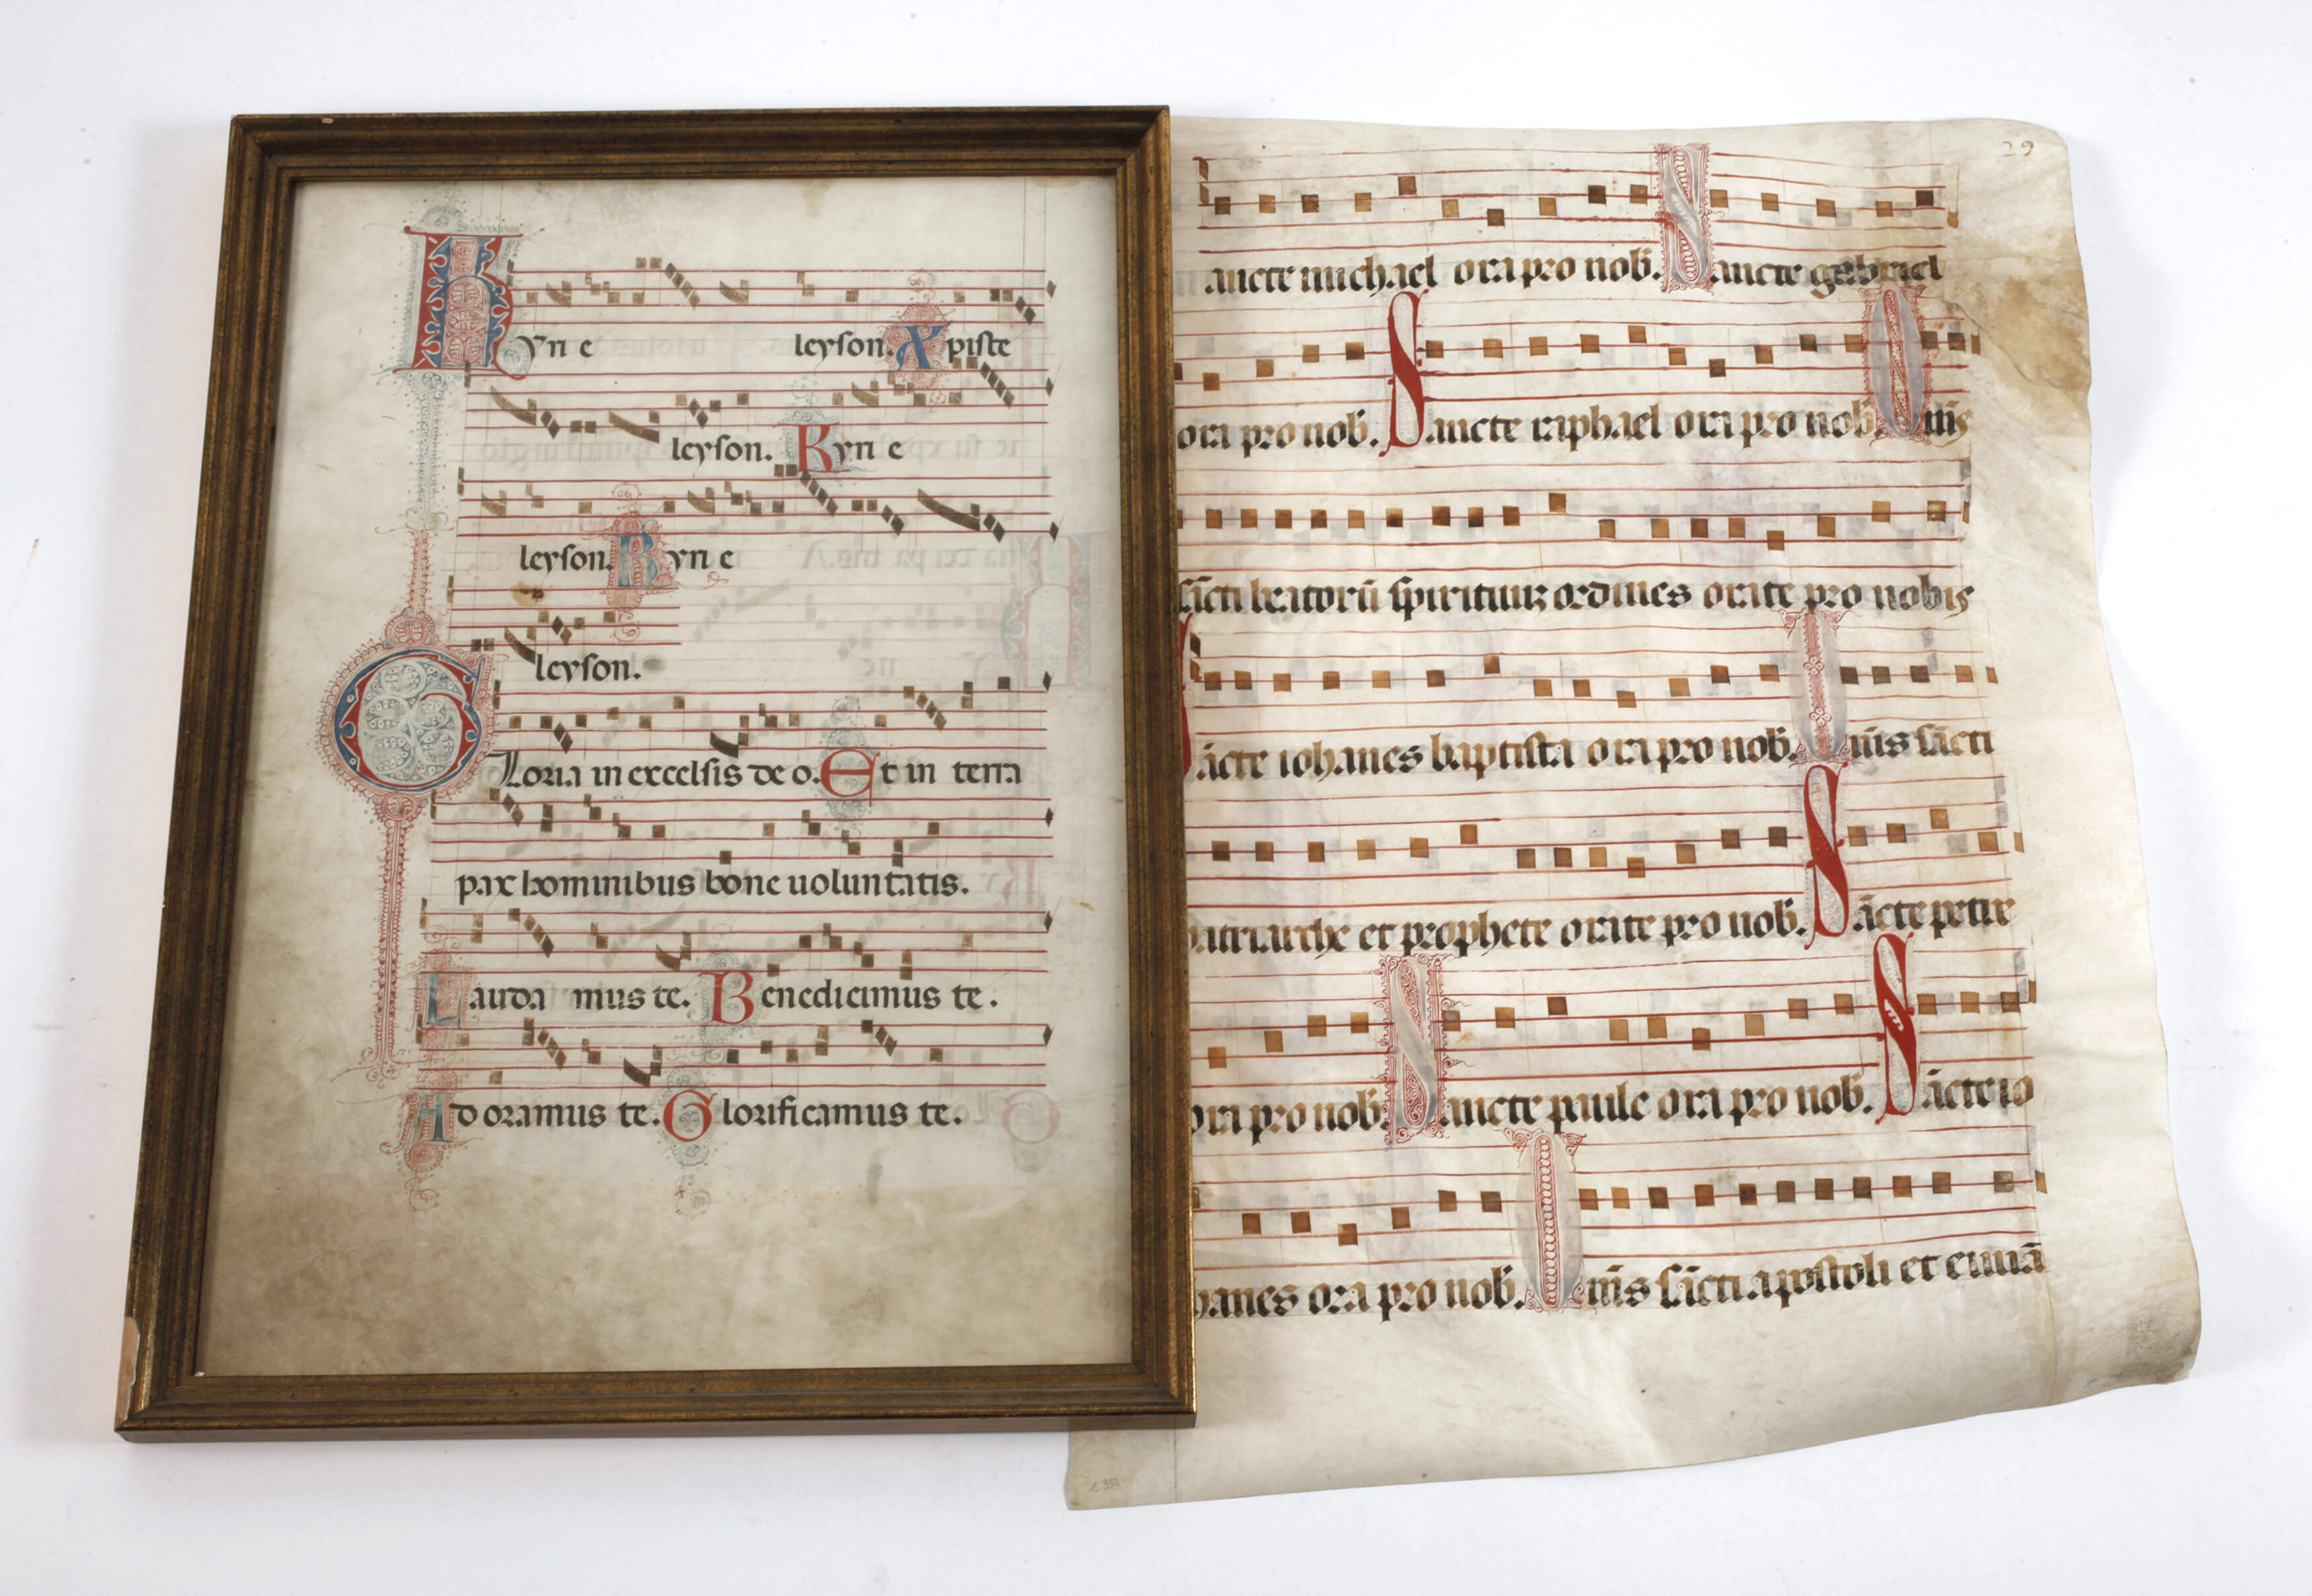 Kyri e leyson. Xpiste
leyson. Kyri e
leyson. Kyri e
leyson.
Gloria in excelsis de o. Et in terra
pax hominibus bone uoluntatis.
Lauda mus te. Benedicimus te.
Ad oramus te. Glorificamus te.
29
ancte michael ora pro nob̄. Sancte gabriel
ora pro nob̄. Sancte raphael ora pro nob̄. Om̄s
sāncti beatorū spirituum ordines orate pro nobis
Sācte iohanes baptista ora pro nob̄. Om̄s sācti
patriarche et prophete orate pro nob̄. Sācte petre
ora pro nob̄. Sancte paule ora pro nob̄. Sācte io
hanes ora pro nob̄. Om̄s sācti apostoli et